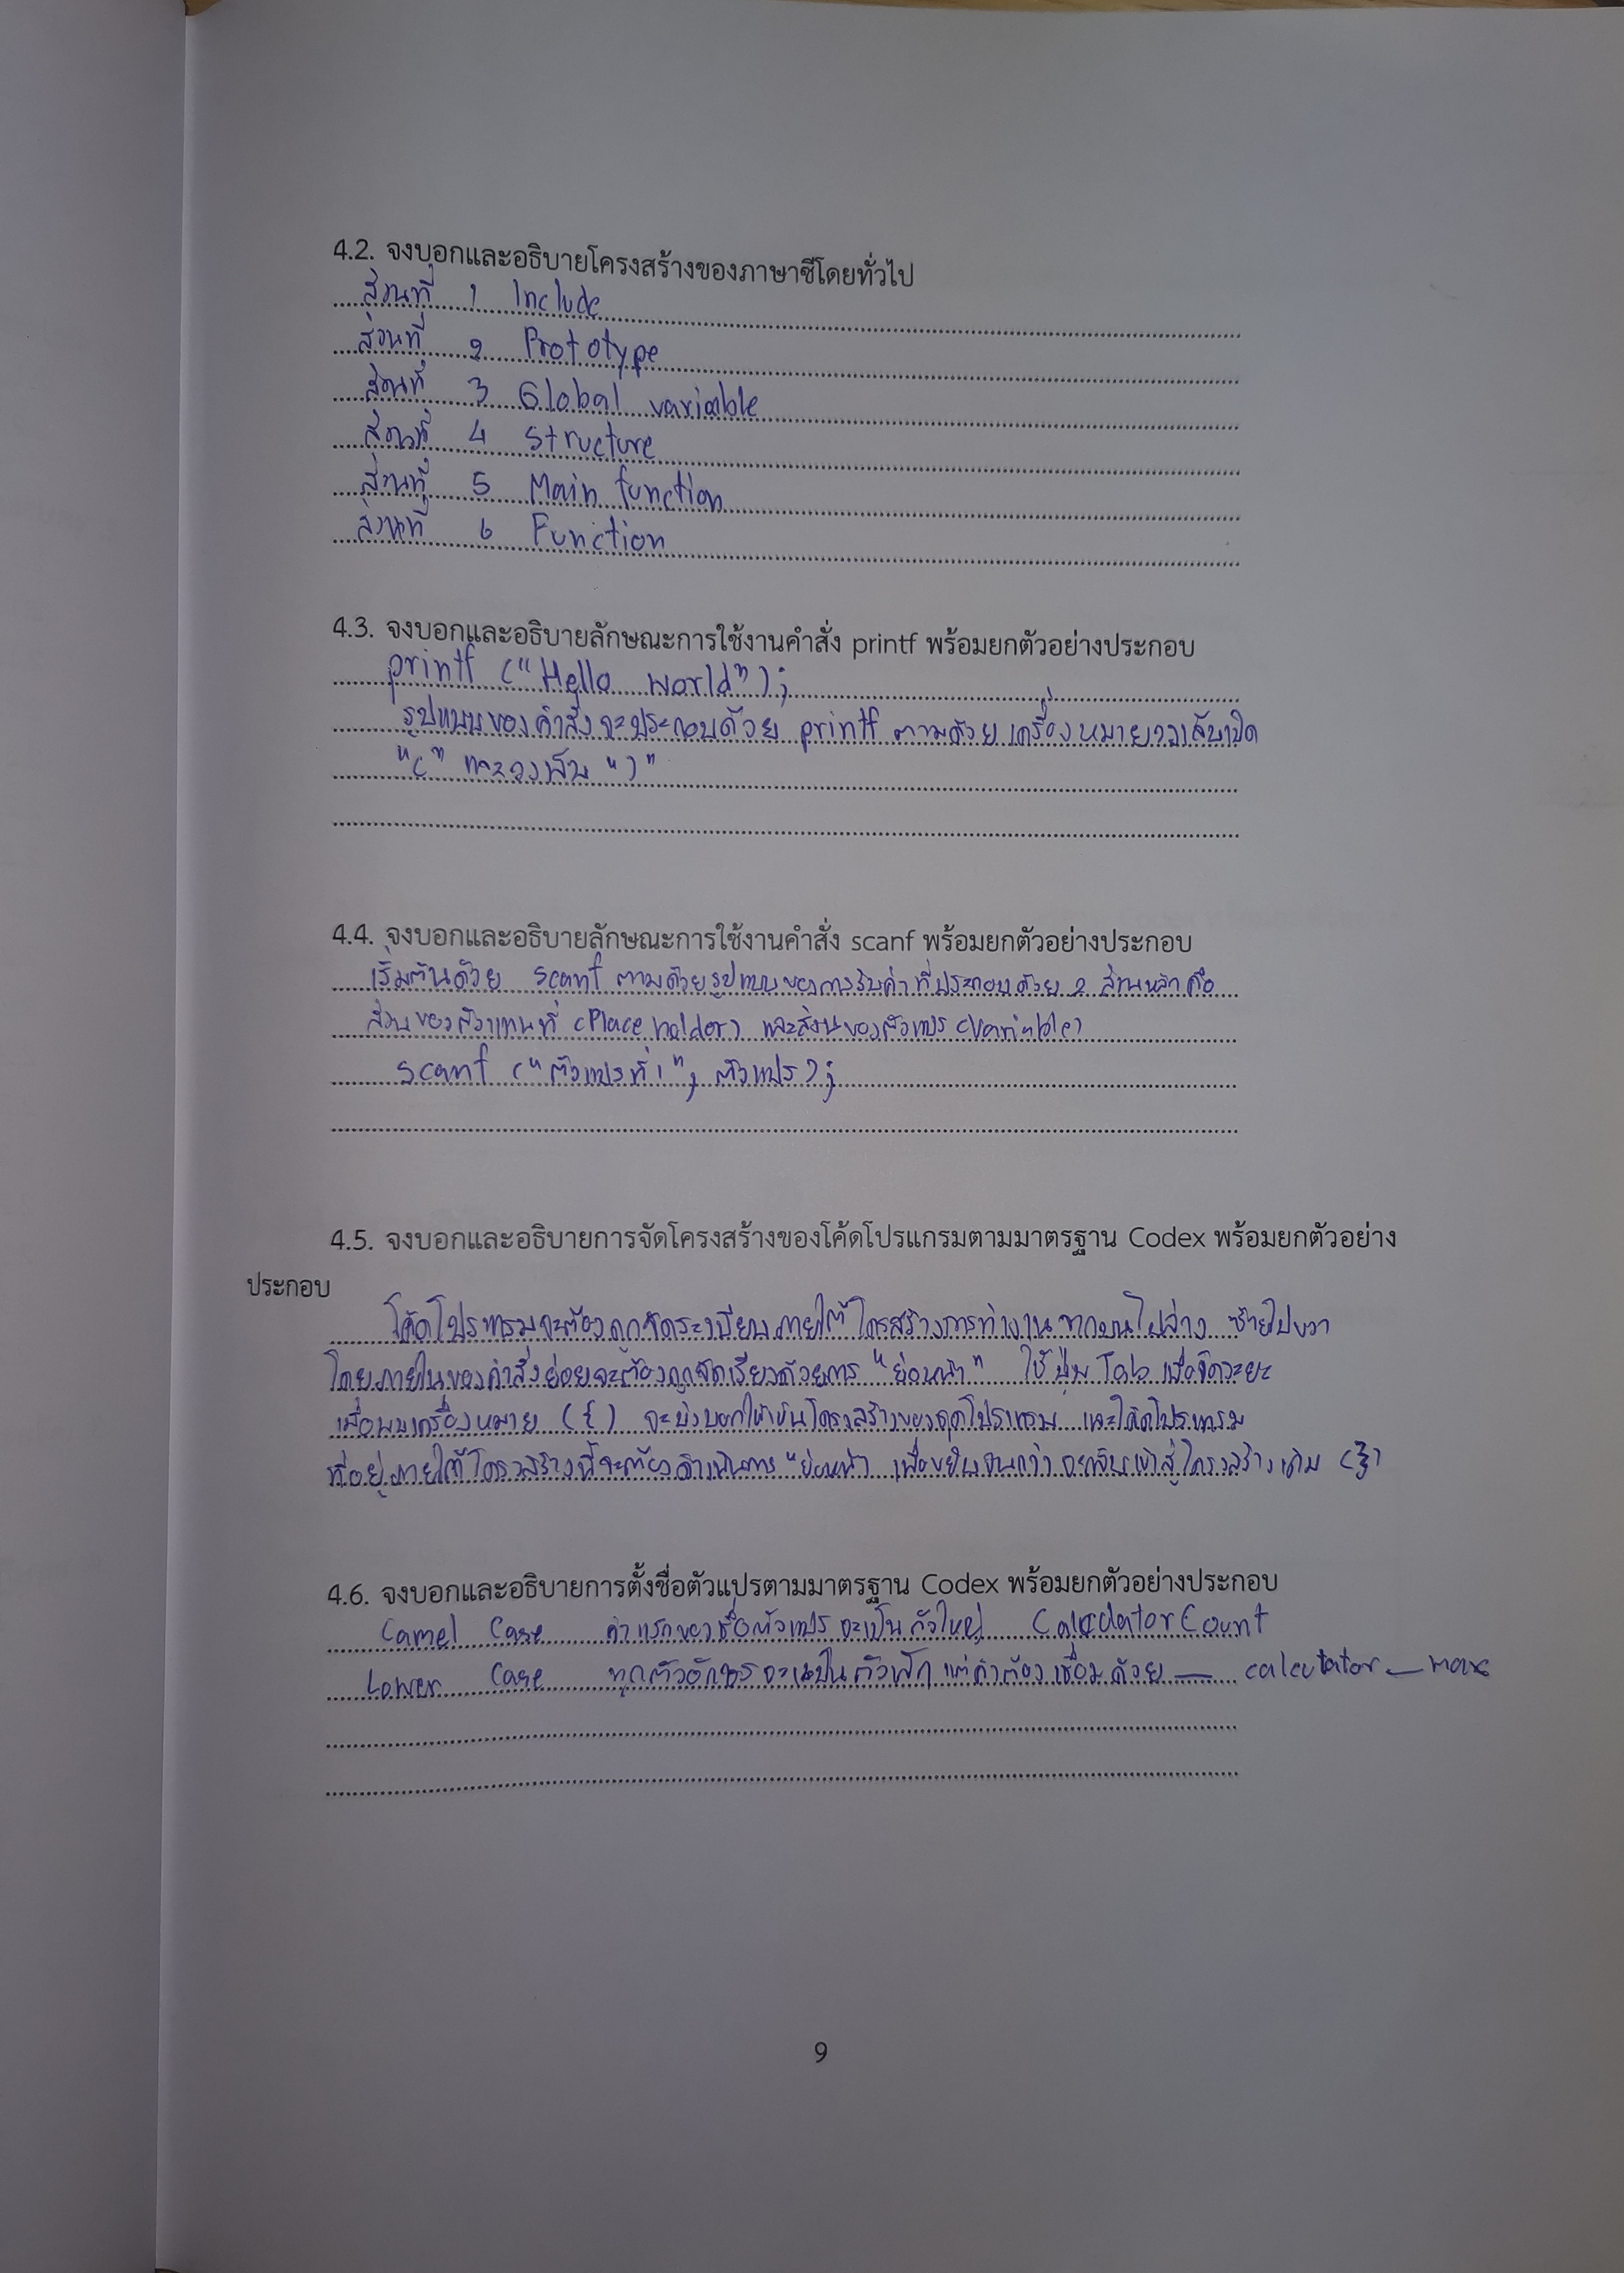 4.2. จงบอกและอธิบายโครงสร้างของภาษาซีโดยทั่วไป
ส่วนที่ 1 Include
ส่วนที่ 2 Prototype
ส่วนที่ 3 Global variable
ส่วนที่ 4 Structure
ส่วนที่ 5 Main function
ส่วนที่ 6 Function
4.3. จงบอกและอธิบายลักษณะการใช้งานคำสั่ง printf พร้อมยกตัวอย่างประกอบ
printf ("Hello world");
รูปแบบของคำสั่งจะประกอบด้วย printf ตามด้วย เครื่องหมายวงเล็บเปิด
"(" และวงเล็บ ")"
4.4. จงบอกและอธิบายลักษณะการใช้งานคำสั่ง scanf พร้อมยกตัวอย่างประกอบ
เริ่มต้นด้วย scanf ตามด้วยรูปแบบของการรับค่าที่ประกอบด้วย 2 ส่วนหลัก คือ
ส่วนของตัวแทนที่ (Place holder) และส่วนของตัวแปร (Variable)
scanf ("ตัวแปรที่ 1", ตัวแปร);
4.5. จงบอกและอธิบายการจัดโครงสร้างของโค้ดโปรแกรมตามมาตรฐาน Codex พร้อมยกตัวอย่าง
ประกอบ
โค้ดโปรแกรมจะต้องถูกจัดระเบียบภายใต้โครงสร้างการทำงานจากบนไปล่าง ซ้ายไปขวา
โดยภายในของคำสั่งย่อยจะต้องถูกจัดเรียงด้วยการ "ย่อหน้า" ใช้ปุ่ม Tab เพื่อจัดระยะ
เมื่อพบเครื่องหมาย ({) จะบ่งบอกให้เห็นโครงสร้างของชุดโปรแกรม และโค้ดโปรแกรม
ที่อยู่ภายใต้โครงสร้างนี้จะต้องดำเนินการ "ย่อหน้า เพื่อขยับจนกว่าจะกลับเข้าสู่โครงสร้างเดิม (})
4.6. จงบอกและอธิบายการตั้งชื่อตัวแปรตามมาตรฐาน Codex พร้อมยกตัวอย่างประกอบ
Camel Case คำแรกของชื่อตัวแปรจะเป็นตัวใหญ่ CalculatorCount
Lower Case ทุกตัวอักษรจะเป็นตัวเล็ก แต่คำต้องเชื่อมด้วย _ calculator_max
9